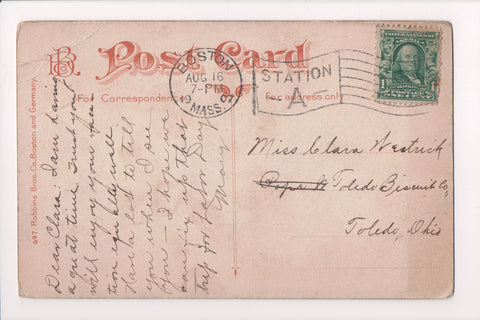 Post Card
For Correspondence
For address only
697. Robbins Bros. Co. Boston and Germany.
BOSTON
AUG 16
7-PM
1907
MASS.
STATION
A
Dear Clara: I am having
a great time. Trust you
will enjoy your vaca-
tion equally well
Have a lot to tell
you when I see
you - I hope we
arrange up that
trip for Labor Day
Mary
Miss Clara Westrick
Toledo Biscuit Co,
Toledo, Ohio